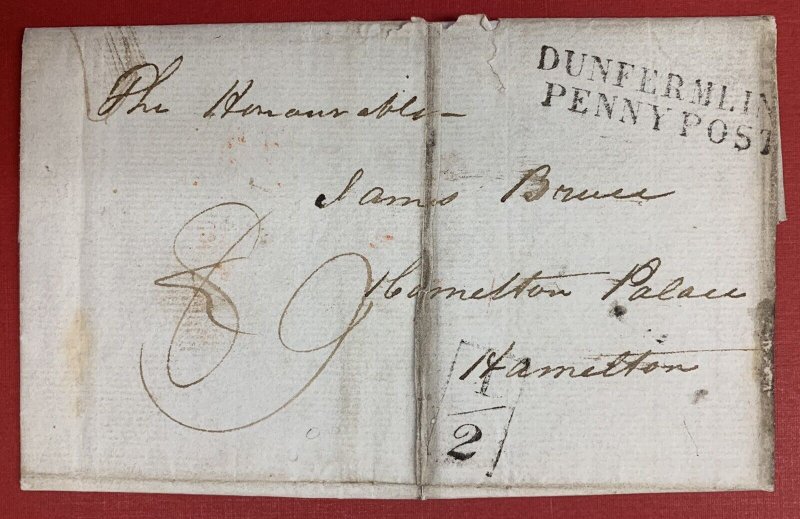 DUNFERMLIN
PENNY POST
The Honourable
James Bruce
Hamelton Palace
Hamelton
8
9
1
2